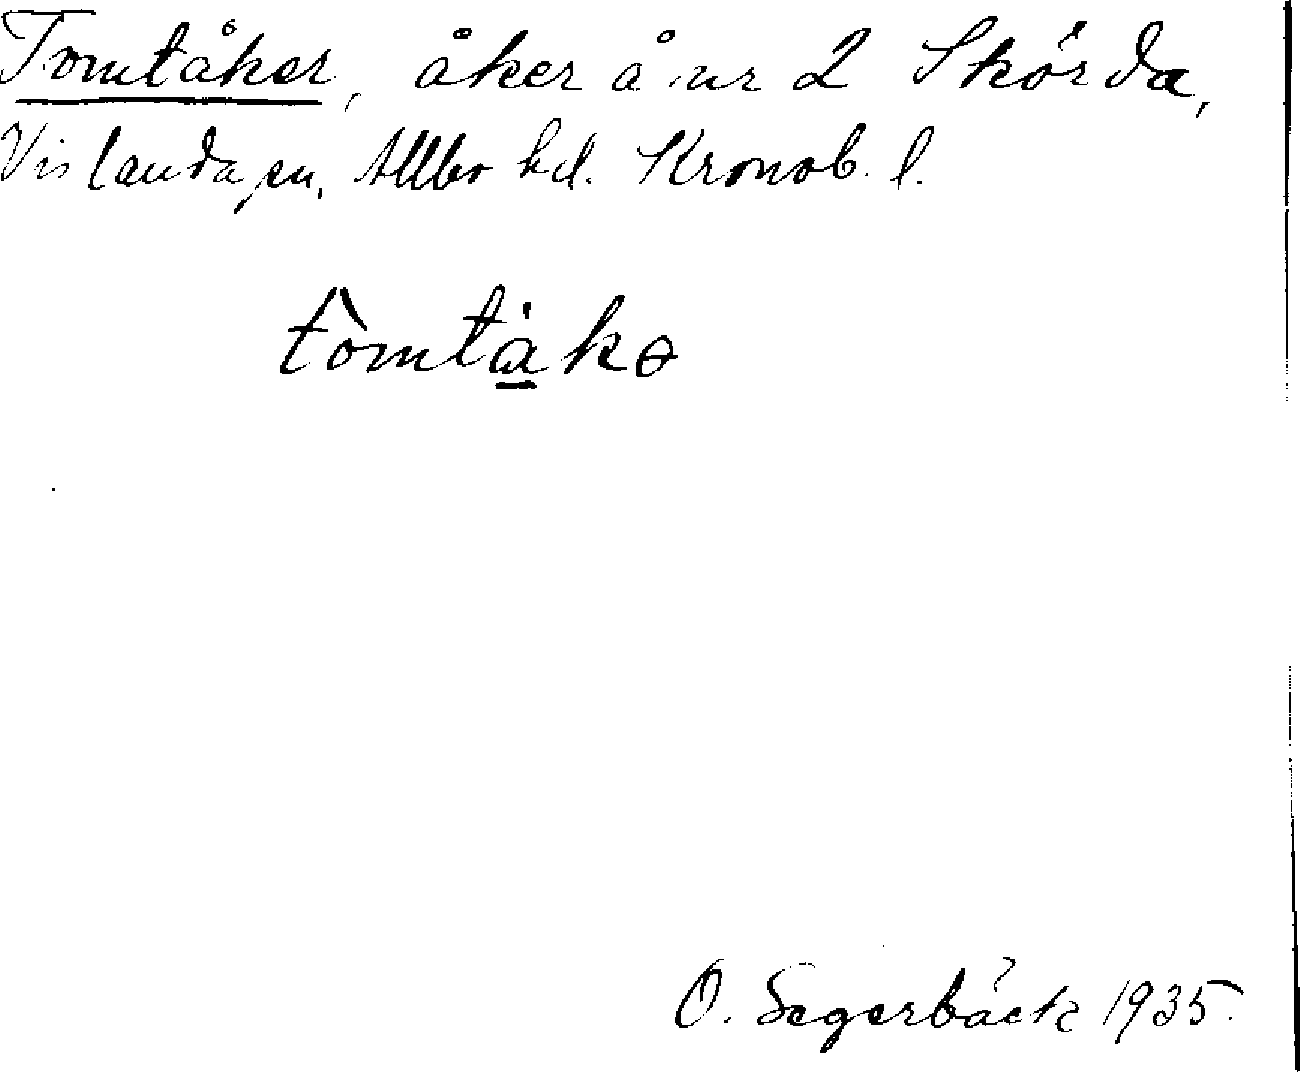 Tomtåker, åker å nr 2 Skörda,
Vislanda sn, Allbo hd. Kronob. l.
tòmtå̠kə
O. Segerbäck 1935.